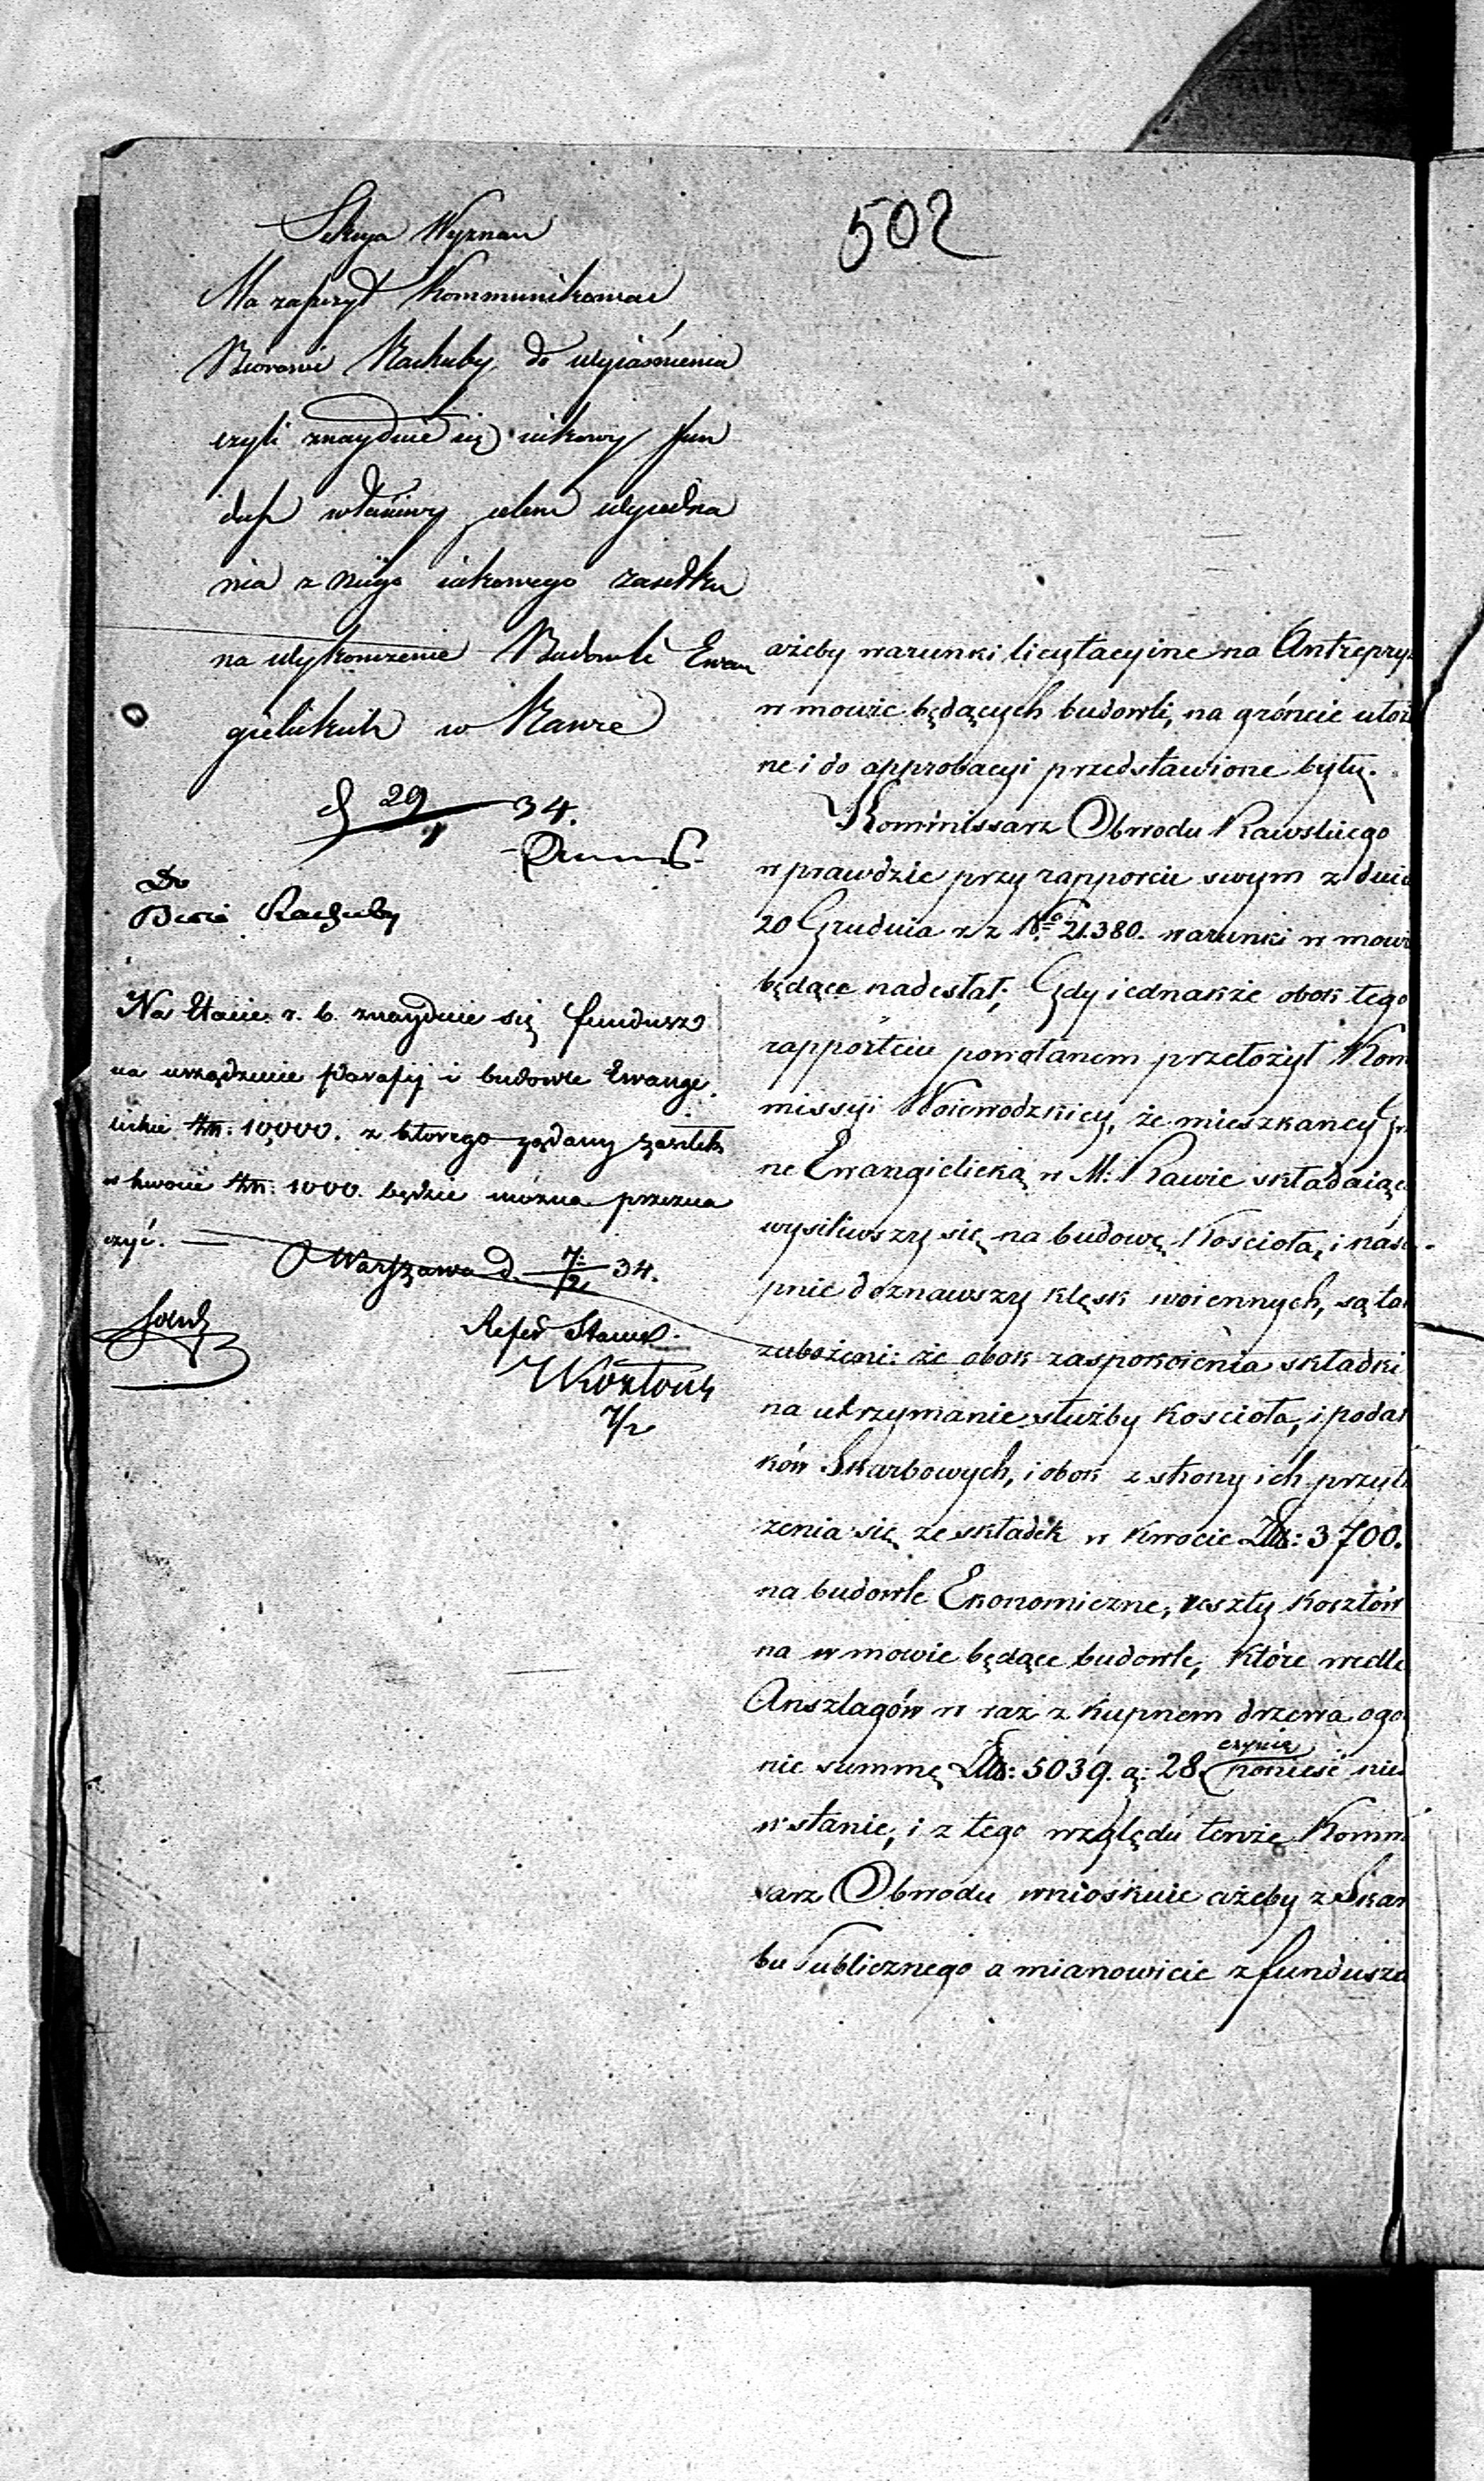 502
Sekcya Wyznań
Ma zaszczyt Kommunikować
Biórowi Rachuby do wyjaśnienia
czyli znayduie się iakowy fun
dusz właściwy celem wyjedna
nia z niego iakowego zasiłku
na wykończenie Budowli Ewan
gielickich w Rawie
d 29/1 34.
Do
Biura Rachuby
Na Etacie r. b. znayduie się fundusz
na urządzenie Parafij i budowle Ewange
lickie złp: 10,000. z którego żądany zasiłek
w kwocie złp: 1000. będzie można przezna
czyć. —
Warszawa d. 7/2 34.
Refer Stanu
7/2
ażeby warunki licytacyine na Antrepry
w mowie będących budowli, na gróncie ułoż
ne i do approbacyi przedstawione były.
Kommissarz Obwodu Rawskiego
w prawdzie przy rapporcie swym z dnia
20 Grudnia r z No 21.380. warunki w mowie
będące nadesłał; Gdy iednakże obok tego
rapportem powołanem przełożył Kom
missyi Woiewodzkiey, że mieszkańcy Gm
ne Ewangielicką w M: Rawie składaiąc
wysiliwszy się na budowę Kościoła, i nas
pnie doznawszy klęsk woiennych, są ta
zubożeni: że obok zaspokoienia składki
na utrzymanie służby Kościoła, i podat
ków Skarbowych, i obok z strony ich przył
żenia się ze składek w kwocie Złp: 3700.
na budowle Ekonomiczne, reszty kosztów
na w mowie będące budowle, które wedle
Anszlagów w raz z kupnem drzewa ogó
nie summę Złp: 5039. g: 28 czynią ponieść nie
w stanie, i z tego względu tenże Komm
sarz Obwodu wnioskuie ażeby z Skar
bu Publicznego a mianowicie z fundusza